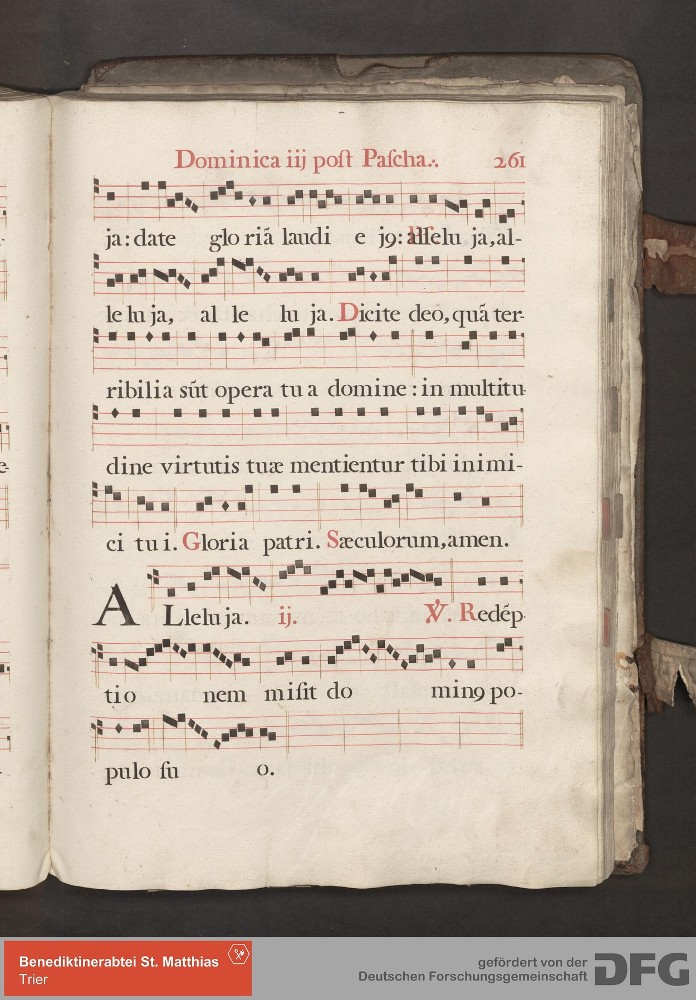 Dominica iij post Pascha∴ 261
ja: date gloriã laudi e j9: alleluja, al-
leluja, alleluja. Dicite deo, quã ter-
ribilia sũt opera tua domine: in multitu
dine virtutis tuæ mentientur tibi inimi-
ci tui. Gloria patri. Sæculorum, amen.
ALleluja. ij. ℣. Redẽp
tionem misit do min9 po-
pulo su o.
Benediktinerabtei St. Matthias
Trier
gefördert von der
Deutschen Forschungsgemeinschaft DFG